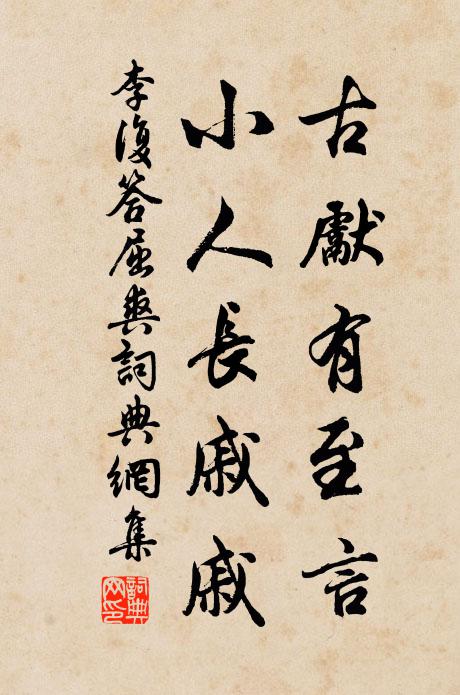 古獻有至言
小人長戚戚
李復答屈爽詞典網集
詞典網印